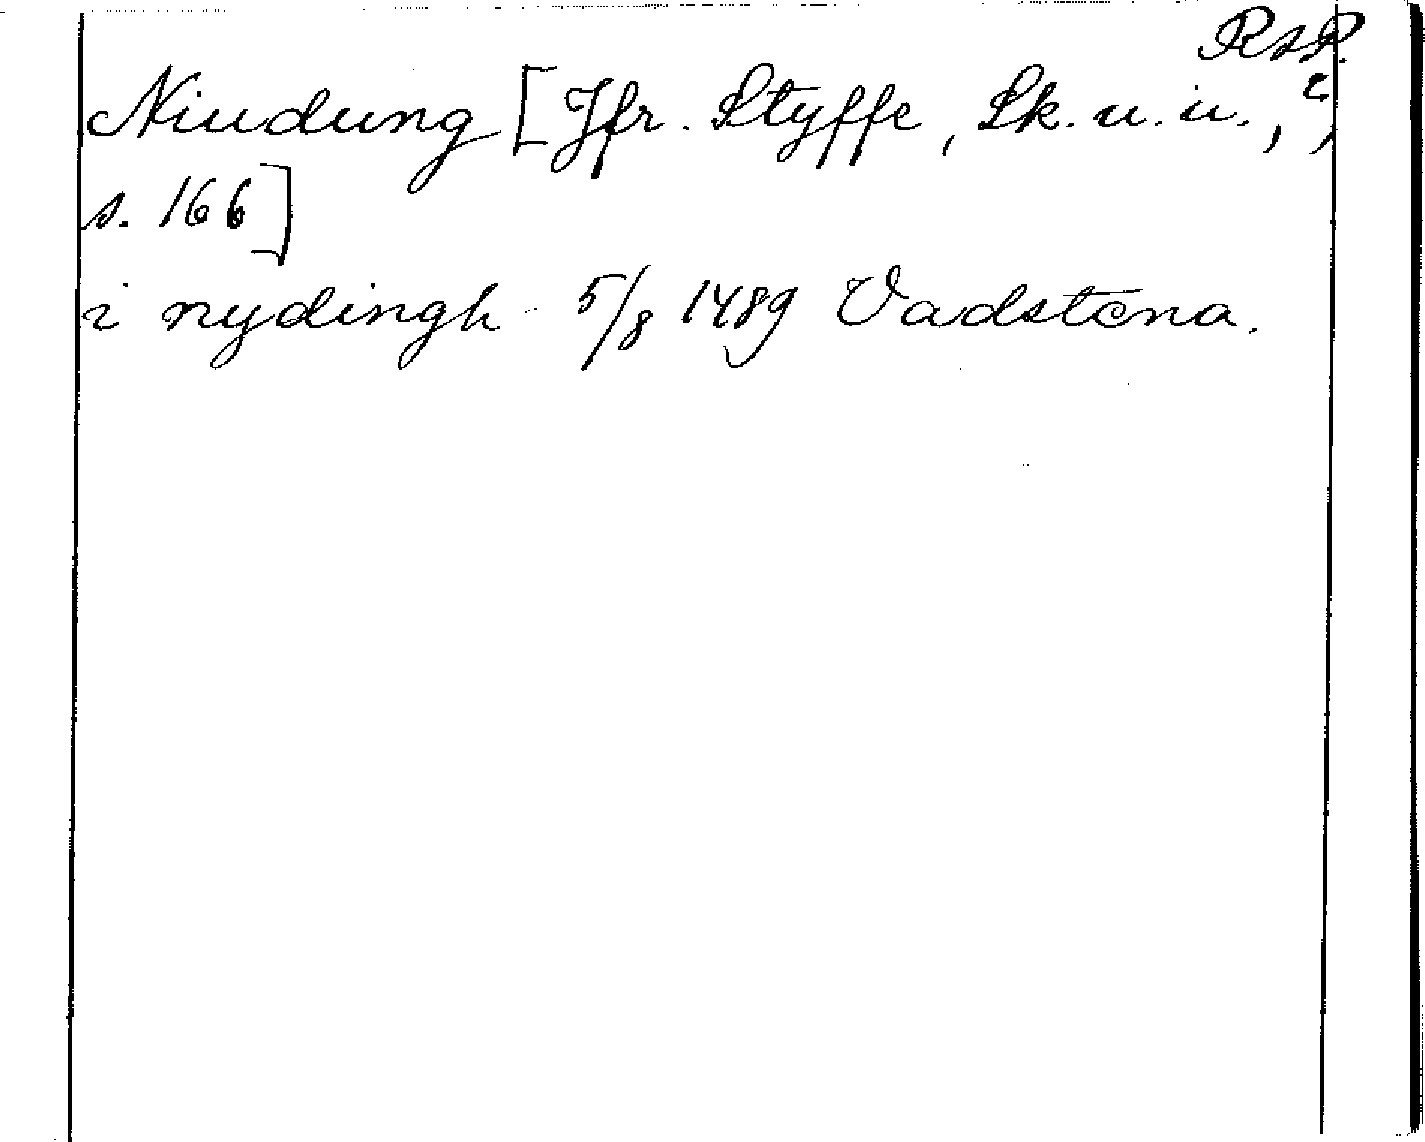 RAP.
Niudung [Jfr. Styffe, Sk. u. u., 2,
s. 166]
i nydingh 5/8 1489 Vadstena.